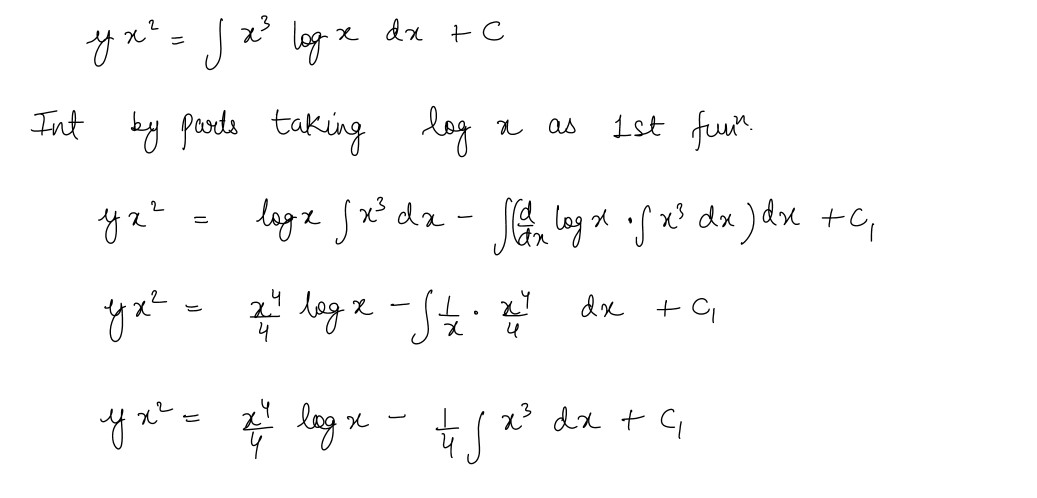 y x² = ∫ x³ log x dx + C
Int by parts taking log x as 1st funⁿ.
y x² = log x ∫ x³ dx − ∫(d/dx log x · ∫ x³ dx) dx + C₁
y x² = x⁴/4 log x − ∫ 1/x · x⁴/4 dx + C₁
y x² = x⁴/4 log x − 1/4 ∫ x³ dx + C₁